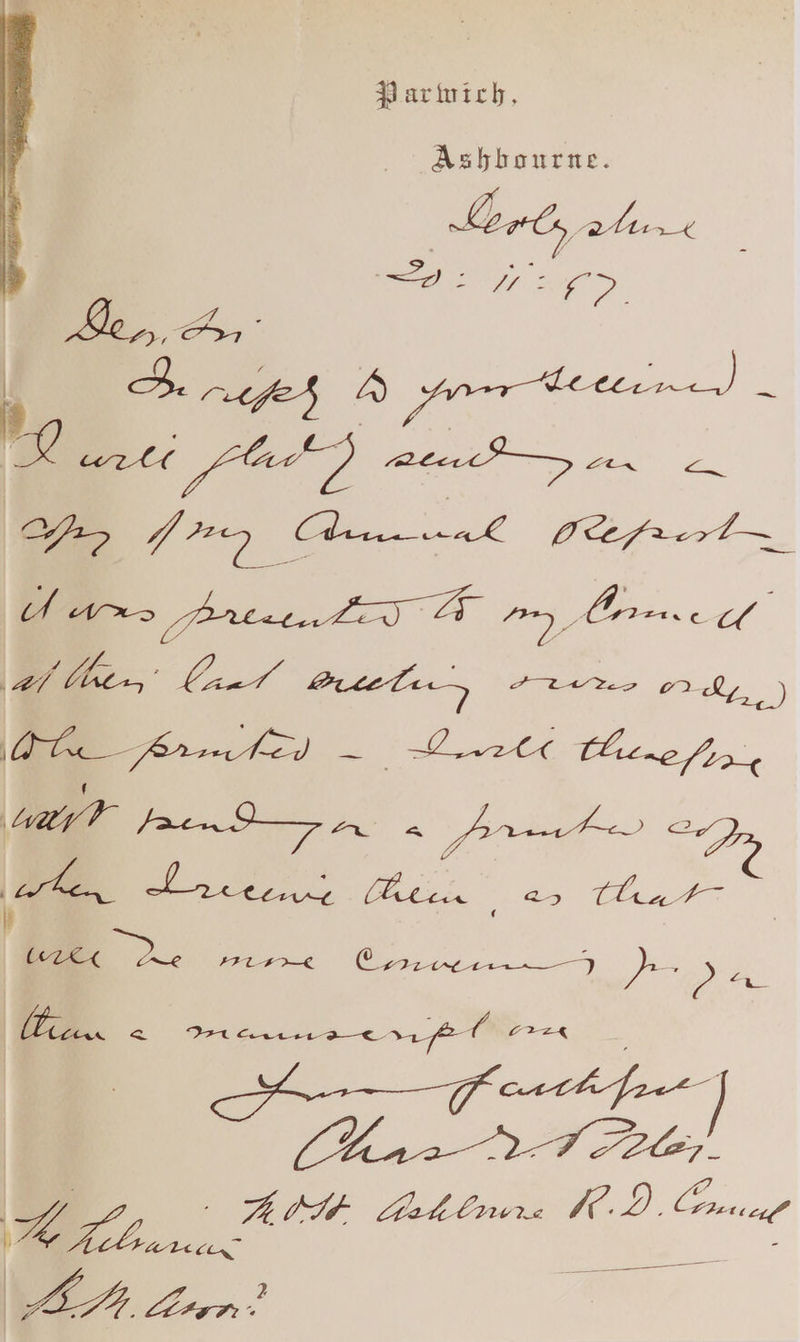 Parwich,
Ashbourne.
Derbyshire
Dear Sir
In reply to your
I will gladly send you a
copy of my Annual Report
it was presented to my Council
at their last meeting & was ordered
to be printed – I will therefore
wait & send you a printed copy
when I receive them, as that
will be more convenient for you
than a manuscript one
Yours faithfully
Chas
M.O.H. Ashbourne R.D. Council
The Librarian
B.M. Assn.